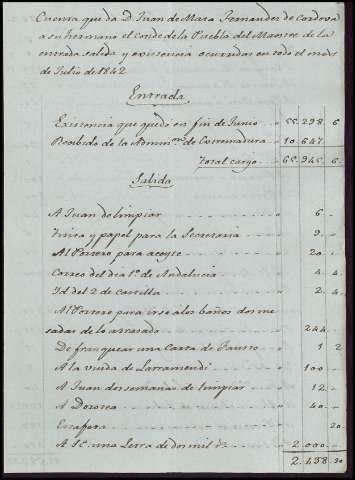 Cuenta que da D. Juan de Mata Fernandez de Cordova
a su hermano el conde de la Puebla del Maestre de la
entrada salida y existencia ocurridas en todo el mes
de Julio de 1842
Entrada
Existencia que quedó en fin de Junio 55.298 6
Recibido de la Admin.on de Estremadura 10.647
Total cargo 65.945 6
Salida
A Juan de limpiar 6
y papel para la Secretaria 9
Al Portero para aceyte 20
Correo del dia 1.º de Andalucia 4 4
Id del 2 de Castilla 2 4
Al Portero para irse a los baños dos me
sadas de lo atrasado 244
De franquear una Carta de Fausto 1 2
A la viuda de Larramendi 100
A Juan dos semanas de limpiar 12
A Dorotea 40
Estafeta 20
A una Letra de dos mil 2.000
2.438 30